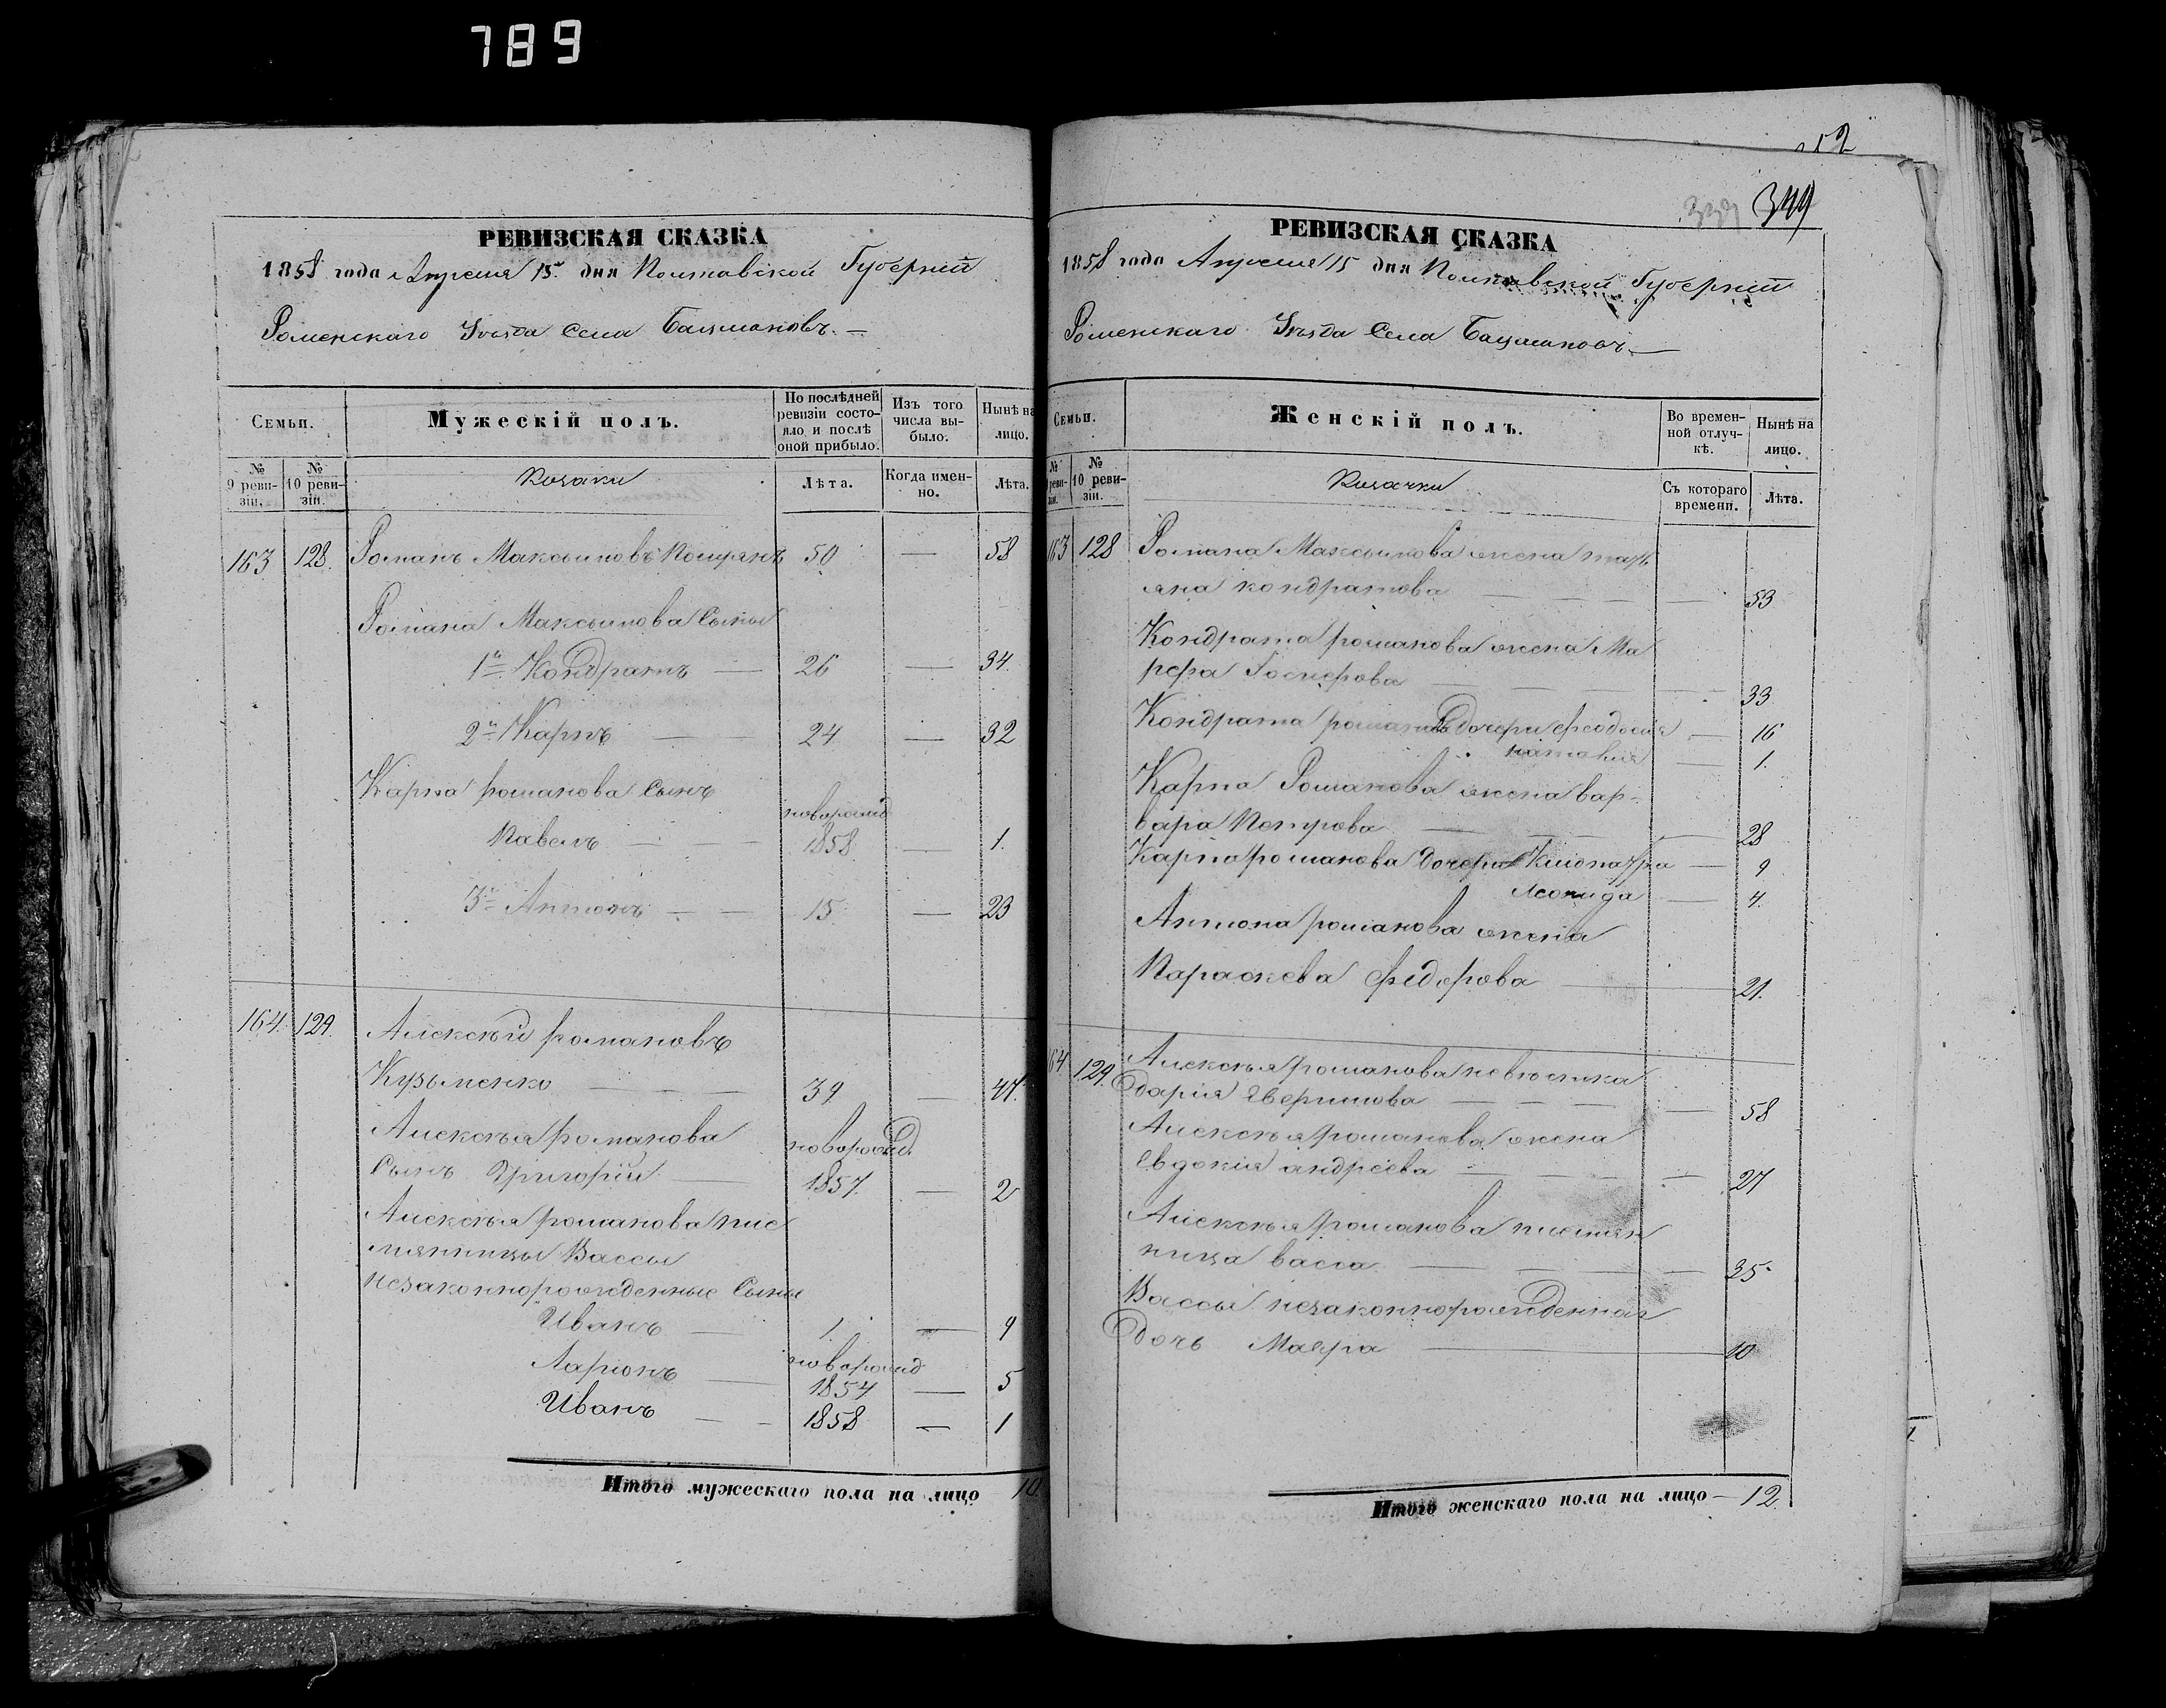 789
РЕВИЗСКАЯ СКАЗКА
1858 года Апреля 15 дня Полтавской Губерніи
Роменскаго Уѣзда Села Бацмановъ.
Семьи.
Мужескій полъ.
По послѣдней ревизіи состояло и послѣ оной прибыло.
Изъ того числа выбыло.
Нынѣ на лицо.
№ 9 ревизіи.
№ 10 ревизіи.
Козаки
Лѣта.
Когда именно.
Лѣта.
163 128. Романъ Максимовъ 50 — 58
Романа Максимова Сыны
1й Кондратъ — 26 — 34.
2й Карпъ — 24 — 32
Карпа романова Сынъ
новорожд
Павелъ — 1858 — 1.
3й Антонъ — 15 — 23
164. 129. Алексѣй романовъ
Кузьменко — 39 — 47.
Алексѣя романова новорожд.
Сынъ Григорій — 1857 — 2
Алексѣя романова пле
мянницы Вассы
незаконнорожденные Сыны
Иванъ — 1. — 9
Ларіонъ — новорожд 1854 — 5
Иванъ — 1858 — 1
Итого мужескаго пола на лицо 10
52
339 349
РЕВИЗСКАЯ СКАЗКА
1858 года Апреля 15 дня Полтавской Губерніи
Роменскаго Уѣзда Села Бацмановъ.
Семьи.
Женскій полъ.
Во временной отлучкѣ.
Нынѣ на лицо.
№ 9 ревизіи.
№ 10 ревизіи.
Козачки
Съ котораго времени.
Лѣта.
163 128 Романа Максимова жена тать
яна кондратова — 53
Кондрата романова жена Ма
рфа — 33
Кондрата романова дочери феодосія — 16
наталия — 1.
Карпа Романова жена вар-
вара Петрова — 28
Карпа романова дочери Клиопатра — 9
Леонида — 4.
Антона романова жена
Параскева федорова — 21.
164 129. Алексѣя романова невѣстка
дарія — 58
Алексѣя романова жена
Евдокия андреева — 27
Алексѣя романова племян
ница васса — 35
Вассы незаконнорожденная
дочь Мавра — 10
Итого женскаго пола на лицо — 12.